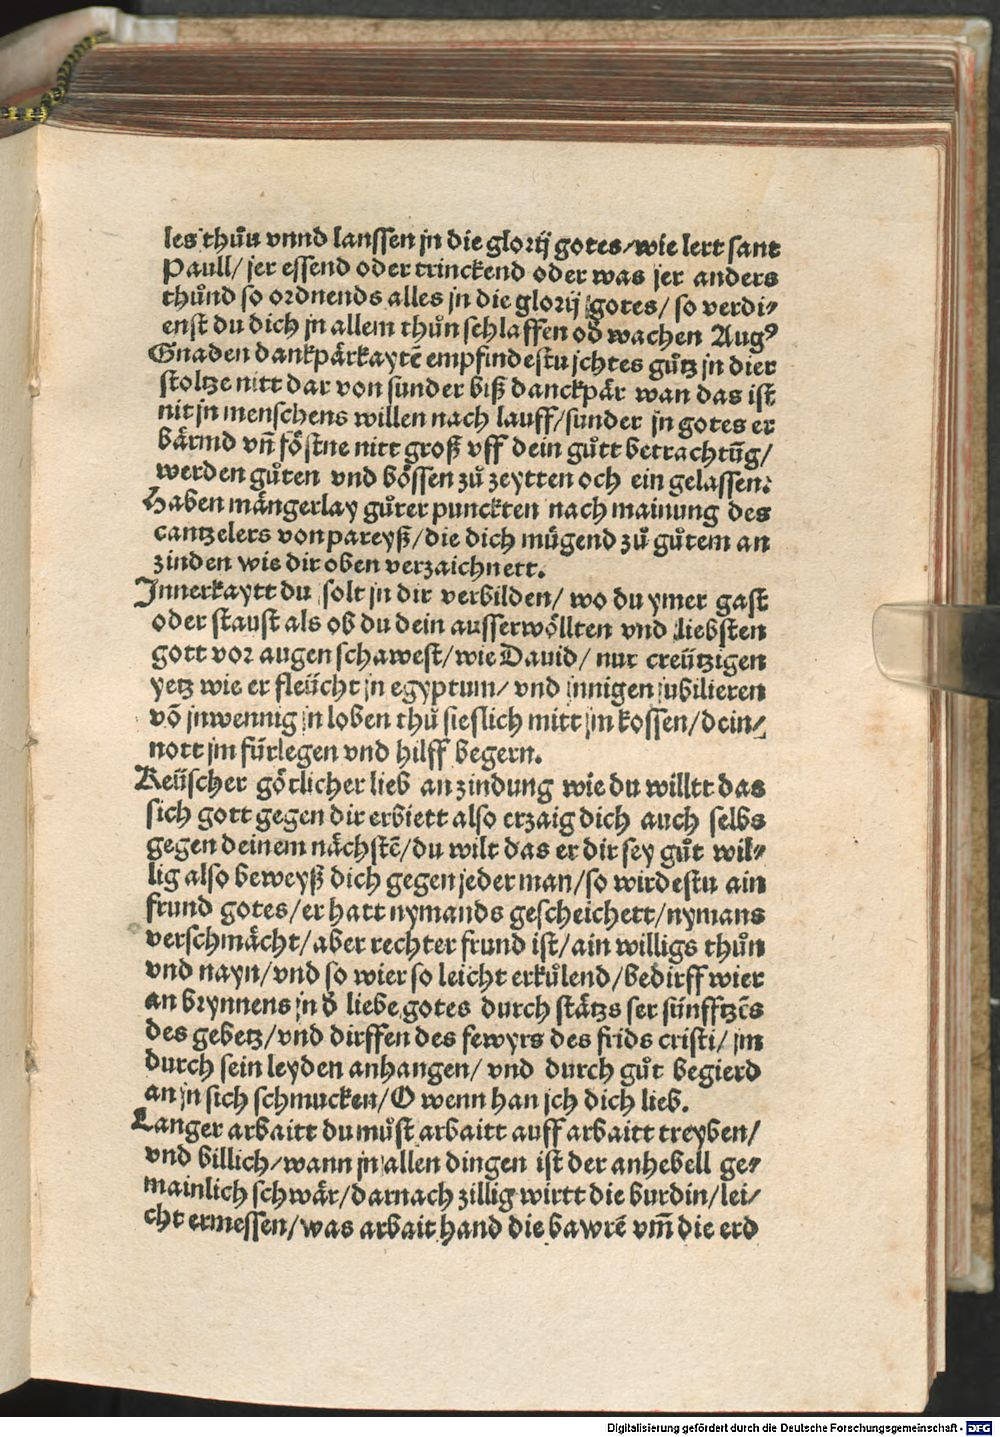 les thůn vnnd lanssen jn die glorij gotes/wie lert sant
Paull/ jer essend oder trinckend oder was jer anders
thůnd so ordnends alles jn die glorij gotes/ so verdi⸗
enst du dich jn allem thůn schlaffen od̓ wachen Augꝰ
Gnaden dankpärkaytē empfindestu jchtes gůtz jn dier
stoltze nitt dar von sunder biß danckpär wan das ist
nit jn menschens willen nach lauff/sunder jn gotes er
bärmd vn̄ föstne nitt groß vff dein gůtt betrachtūg/
werden gůten vnd bössen zů zeytten och ein gelassen.
Haben mängerlay gůter punckten nach mainung des
cantzelers von pareyß/die dich mügend zů gůtem an
zinden wie dir oben verzaichnett.
Innerkaytt du solt jn dir verbilden/ wo du ymer gast
oder staust als ob du dein ausserwöllten vnd liebsten
gott vor augen schawest/wie Dauid/ nur creützigen
yetz wie er fleücht jn egyptum/ vnd jnnigen jubilieren
vō jnwennig jn loben thů sieslich mitt jm kossen/dein⸗
nott jm fürlegen vnd hilff begern.
Keüscher götlicher lieb anzindung wie du willtt das
sich gott gegen dir erbiett also erzaig dich auch selbs
gegen deinem nächstē/du wilt das er dir sey gůt wil⸗
lig also beweyß dich gegen jeder man/so wirdestu ain
frund gotes/er hatt nymands gescheichett/nymans
verschmächt/aber rechter frund ist/ain willigs thůn
vnd nayn/vnd so wier so leicht erkůlend/bedirff wier
an brynnens jn d̓ liebe gotes durch stätzs ser sünfftzēs
des gebetz/vnd dirffen des fewyrs des frids cristi/ jm
durch sein leyden anhangen/ vnd durch gůt begierd
an jn sich schmucken/O wenn han jch dich lieb.
Langer arbaitt du můst arbaitt auff arbaitt treyben/
vnd billich/wann jn allen dingen ist der anhebell ge⸗
mainlich schwär/darnach zillig wirtt die burdin/lei⸗
cht ermessen/was arbait hand die bawrē vm̄ die erd
Digitalisierung gefördert durch die Deutsche Forschungsgemeinschaft - DFG